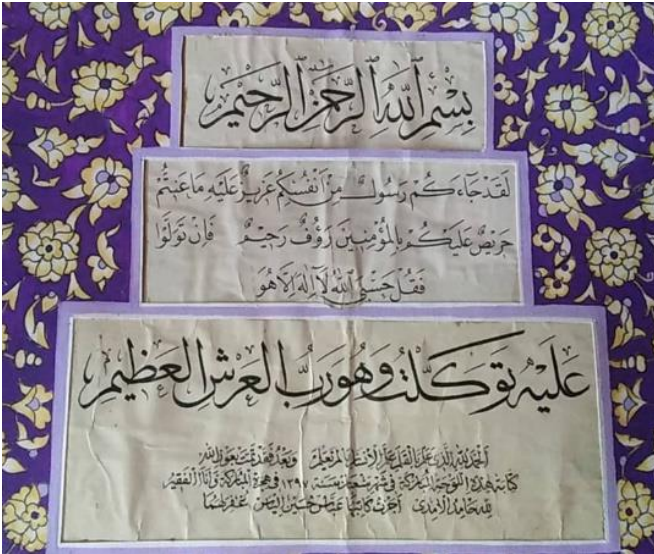 بِسْمِ ٱللَّهِ ٱلرَّحْمَٰنِ ٱلرَّحِيمِ
لَقَدْ جَاءَكُمْ رَسُولٌ مِنْ أَنْفُسِكُمْ عَزِيزٌ عَلَيْهِ مَا عَنِتُّمْ
حَرِيصٌ عَلَيْكُمْ بِالْمُؤْمِنِينَ رَؤُفٌ رَحِيمٌ فَإِنْ تَوَلَّوْا
فَقُلْ حَسْبِيَ اللهُ لَآ إِلَهَ إِلَّا هُوَ
عَلَيْهِ تَوَكَّلْتُ وَهُوَ رَبُّ الْعَرْشِ الْعَظِيمِ
الحمد لله الذي علم بالقلم علم الإنسان ما لم يعلم وبعد فقد تمت بعون الله
كتابة هذه اللوحة المباركة في شهر شعبان سنة ١٣٩٧ المباركة وأنا الفقير
لله حامد الآمدي أجزت كاتبها عباس حسين غفر لهما